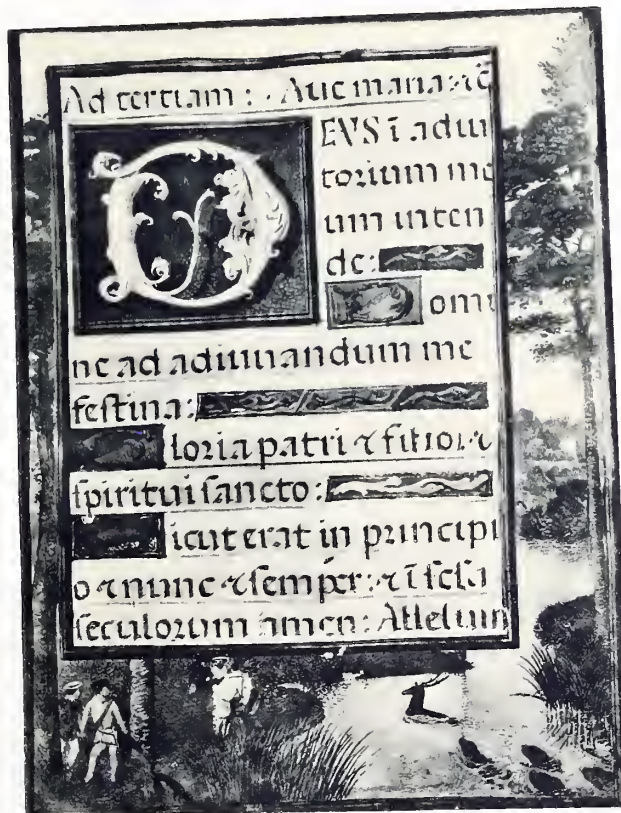 Ad tertiam : . Aue maria. rc̄
DEVS ī adiu
torium me
um inten
de:
Domi
ne ad adiuuandum me
festina:
Gloria patri ⁊ filio: ⁊
spiritui sancto:
Sicut erat in principi
o ⁊ nunc ⁊ semper: ⁊ ī secľa
seculorum amen: Alleluia